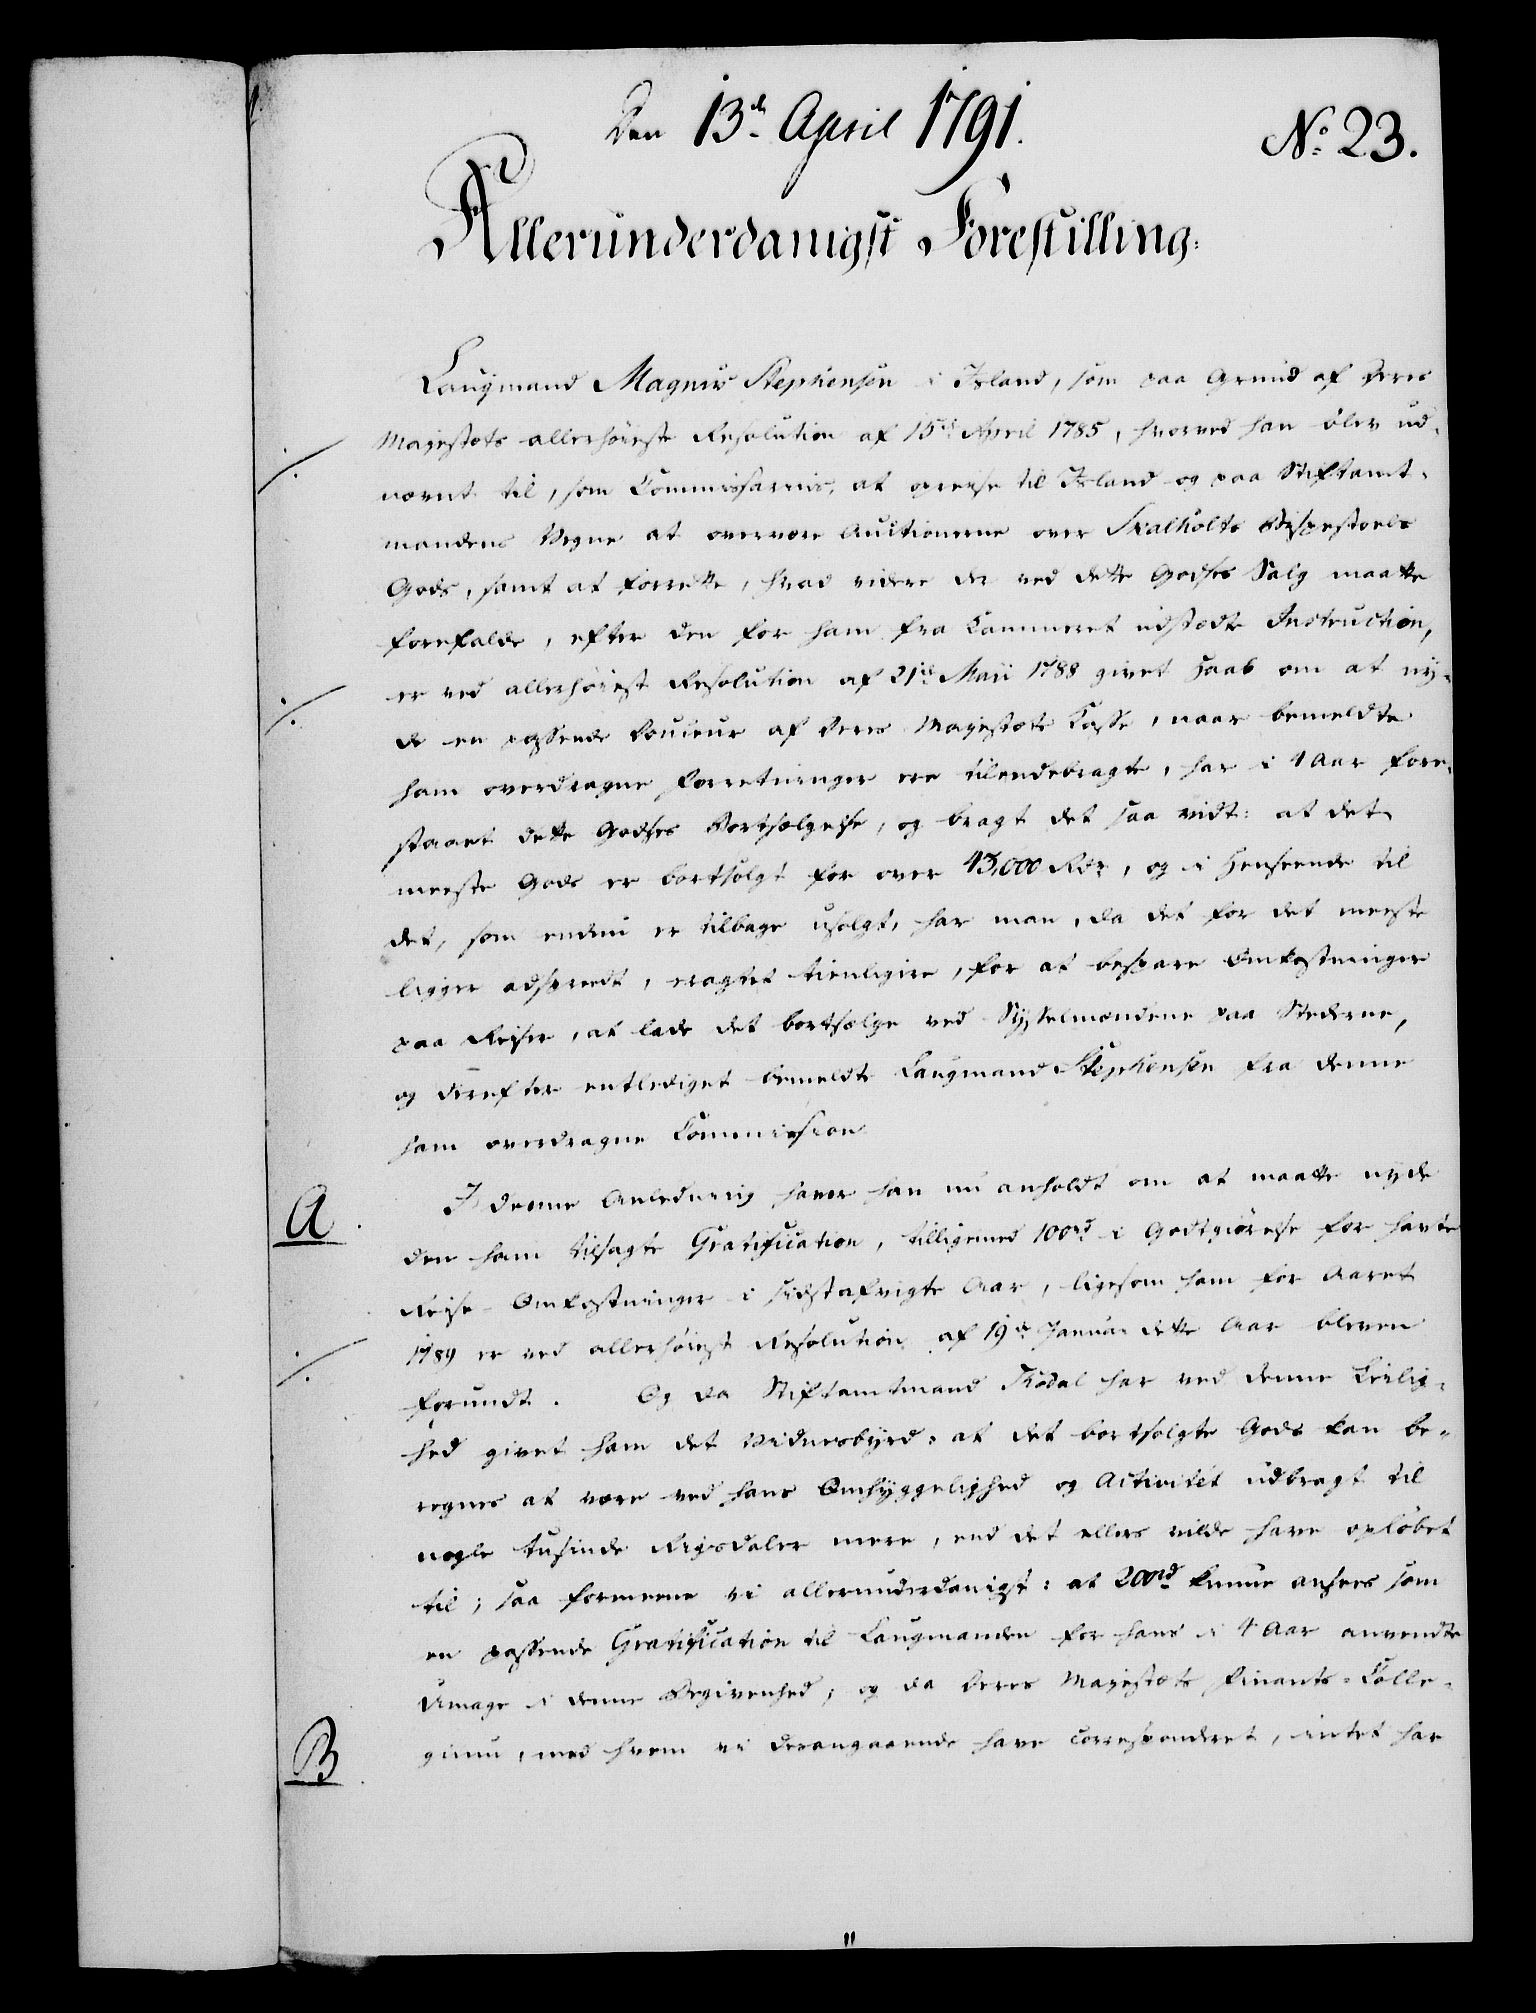 Den 13de April 1791.
No. 23.
Allerunderdanigst Forestilling.
Laugmand Magnus Stephensen i Island, som paa Grund af Deres
Majestæts allerhöieste Resolution af 15de April 1785, hvorved han blev ud-
nævnt til, som Commissarius, at opreise til Island og paa Stiftamt-
mandens Vegne at overvære Auctionerne over Skalholts Bispestoels
Gods, samt at forrette, hvad videre der ved dette Godses Salg maatte
forefalde, efter den for ham fra Kammeret udstædte Instruction,
er ved allerhöiest Resolution af 21de Maii 1788 givet Haab om at ny-
de en passende Douceur af Deres Majestæts Casse, naar bemeldte
ham overdragne Forretninger ere tilendebragte, har i 4 Aar fore-
staaet dette Godses Bortsælgelse, og bragt det saa vidt: at det
meeste Gods er bortsolgt for over 43,000 Rdr, og i Henseende til
det, som endnu er tilbage usolgt, har man, da det for det meeste
ligger adspredt, eragtet tienligere, for at bespare Omkostninger
paa Reiser, at lade det bortsælge ved Sysselmændene paa Stederne,
og derefter entlediget bemeldte Laugmand Stephensen fra denne
ham overdragne Commission.
A
I denne Anledning haver han nu anholdt om at maatte nyde
den ham tilsagte Gratification, tilligemed 100rd i Godtgiörelse for havte
Reise-Omkostninger i sidstafvigte Aar, ligesom ham for Aaret
1789 er ved allerhöiest Resolution af 19de Januar dette Aar bleven
forundt. Og da Stiftamtmand Thodal har ved denne Leilig-
hed givet ham det Vidnesbyrd: at det bortsolgte Gods kan be-
regnes at være ved hans Omhyggelighed og Activitét udbragt til
nogle tusinde Rigsdaler mere, end det ellers vilde have oplöbet
til; saa formeene vi allerunderdanigst: at 200rd kunne ansees som
en passende Gratification til Laugmanden for hans i 4 Aar anvendte
Umage i denne Begivenhed; og da Deres Majestæts Finants-Colle-
B
gium, med hvem vi desangaaende have correspondert, intet har